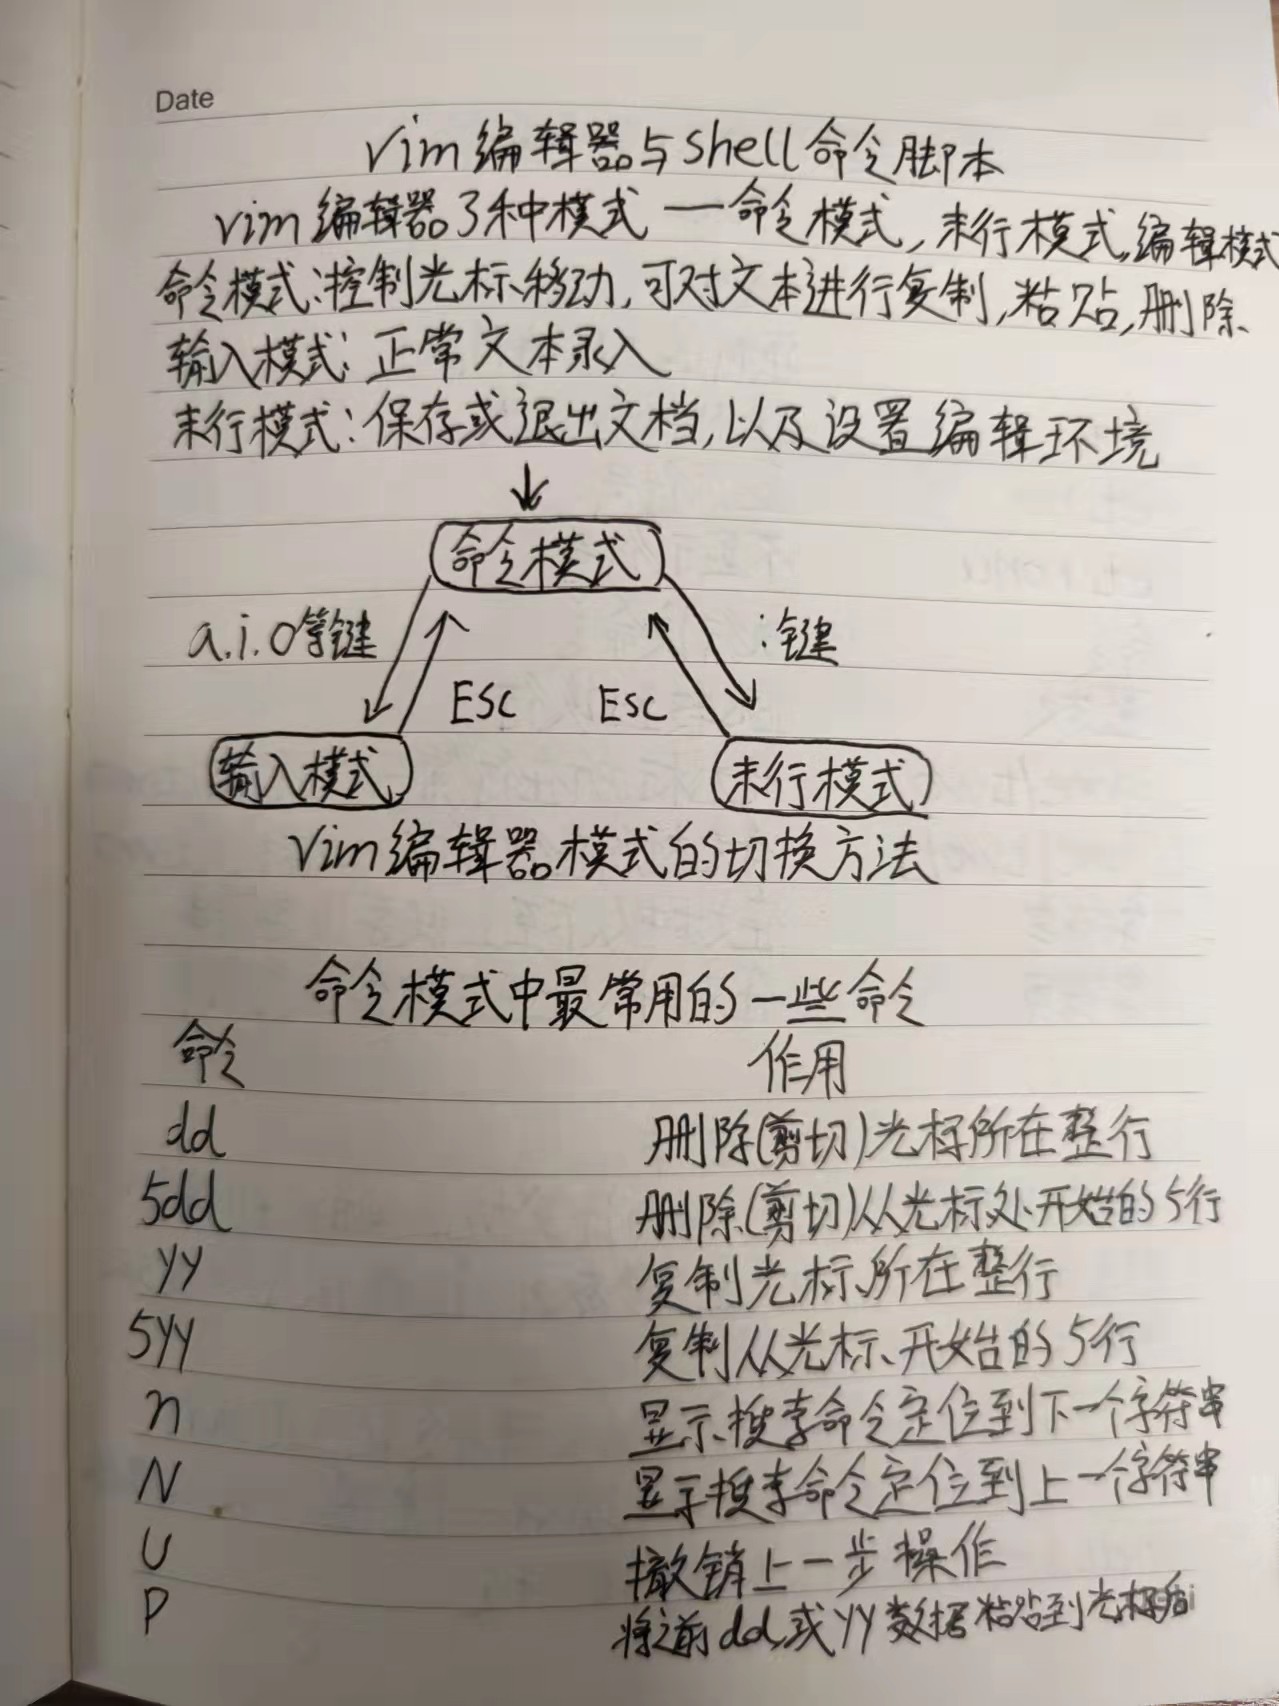 Date
vim编辑器与shell命令脚本
vim编辑器3种模式 — 命令模式,末行模式,编辑模式
命令模式:控制光标移动,可对文本进行复制,粘贴,删除
输入模式:正常文本录入
末行模式:保存或退出文档,以及设置编辑环境
命令模式
a.i.o等键
:键
ESC ESC
输入模式 末行模式
vim编辑器模式的切换方法
命令模式中最常用的一些命令
命令 作用
dd 删除(剪切)光标所在整行
5dd 删除(剪切)从光标处开始的5行
yy 复制光标所在整行
5yy 复制从光标开始的5行
n 显示搜索命令定位到下一个字符串
N 显示搜索命令定位到上一个字符串
U 撤销上一步操作
P 将之前dd或yy数据粘贴到光标后